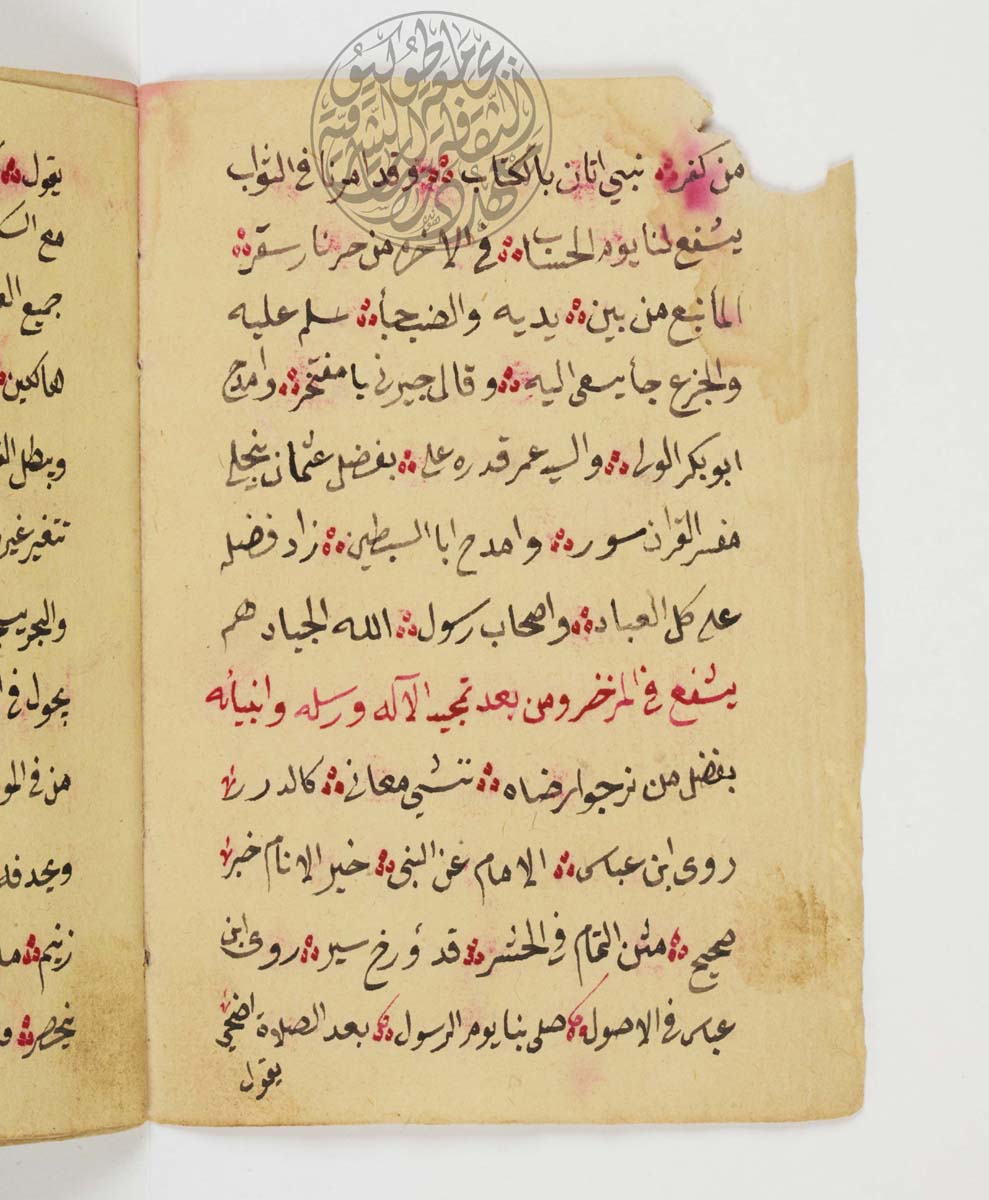 من كفر نبي اتانا بالكتاب وقد امرنا في الثواب
يشفع لنا يوم الحساب في الاخره من حر نار سقر
الما نبع من بين يديه والضب جأ سلم عليه
والجزع جأ يسعى اليه وقال جيرني يا مفتخر وامدح
ابو بكر الولي والسيد عمر قدره علي بفضل عثمان ينجلي
مفسر القران سور وامدح ابا السبطين زاد فضله
على كل العباد واصحاب رسول الله الجياد هم
يشفع في المزخر ومن بعد تمجيد الآله ورسله وانبيائه
بفضل من نرجوا رضاه تنشي معاني كالدرر
روى ابن عباس الامام عن النبي خير الانام خبر
صحيح مثن التمام في الحشر قد ؤرخ سير روى ابن
عباس في الاصول صلى بنا يوم الرسول بعد الصلاة اضحى
يقول
يقول
مع السك
جميع
هالكين
ويبطل
تتغير غير
يجول في
من في المو
زنيم
ينحصر